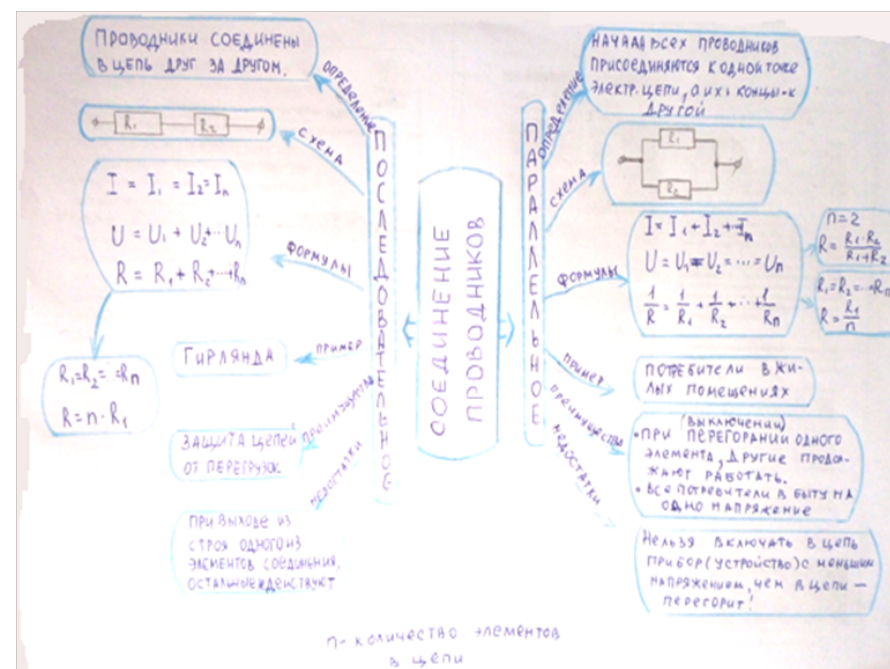 СОЕДИНЕНИЕ
ПРОВОДНИКОВ
ПОСЛЕДОВАТЕЛЬНОЕ
ОПРЕДЕЛЕНИЕ
ПРОВОДНИКИ СОЕДИНЕНЫ
В ЦЕПЬ ДРУГ ЗА ДРУГОМ.
СХЕМА
R₁ R₂
ФОРМУЛЫ
I = I₁ = I₂ = Iₙ
U = U₁ + U₂+...Uₙ
R = R₁ + R₂+...+Rₙ
R₁=R₂= =Rₙ
R=n·R₁
ПРИМЕР
ГИРЛЯНДА
ПРЕИМУЩЕСТВА
ЗАЩИТА ЦЕПЕЙ
ОТ ПЕРЕГРУЗОК
НЕДОСТАТКИ
ПРИ ВЫХОДЕ ИЗ
СТРОЯ ОДНОГО ИЗ
ЭЛЕМЕНТОВ СОЕДИНЕНИЯ,
ОСТАЛЬНЫЕ
ПАРАЛЛЕЛЬНОЕ
ОПРЕДЕЛЕНИЕ
НАЧАЛА ВСЕХ ПРОВОДНИКОВ
ПРИСОЕДИНЯЮТСЯ К ОДНОЙ ТОЧКЕ
ЭЛЕКТР. ЦЕПИ, А ИХ КОНЦЫ-К
ДРУГОЙ
СХЕМА
R₁
R₂
ФОРМУЛЫ
I = I₁ + I₂ +...Iₙ
U = U₁ = U₂ = ... = Uₙ
1/R = 1/R₁ + 1/R₂ + ... + 1/Rₙ
n=2
R = R₁·R₂/R₁+R₂
R₁=R₂=...=Rₙ
R = R₁/n
ПРИМЕР
ПОТРЕБИТЕЛИ В ЖИ-
ЛЫХ ПОМЕЩЕНИЯХ
ПРЕИМУЩЕСТВА
(ВЫКЛЮЧЕНИИ)
• ПРИ ПЕРЕГОРАНИИ ОДНОГО
ЭЛЕМЕНТА, ДРУГИЕ ПРОДОЛ-
ЖАЮТ РАБОТАТЬ.
• ВСЕ ПОТРЕБИТЕЛИ В БЫТУ НА
ОДНО НАПРЯЖЕНИЕ
НЕДОСТАТКИ
НЕЛЬЗЯ ВКЛЮЧАТЬ В ЦЕПЬ
ПРИБОР (УСТРОЙСТВО) С МЕНЬШИМ
НАПРЯЖЕНИЕМ, ЧЕМ В ЦЕПИ —
ПЕРЕГОРИТ!
n - КОЛИЧЕСТВО ЭЛЕМЕНТОВ
В ЦЕПИ